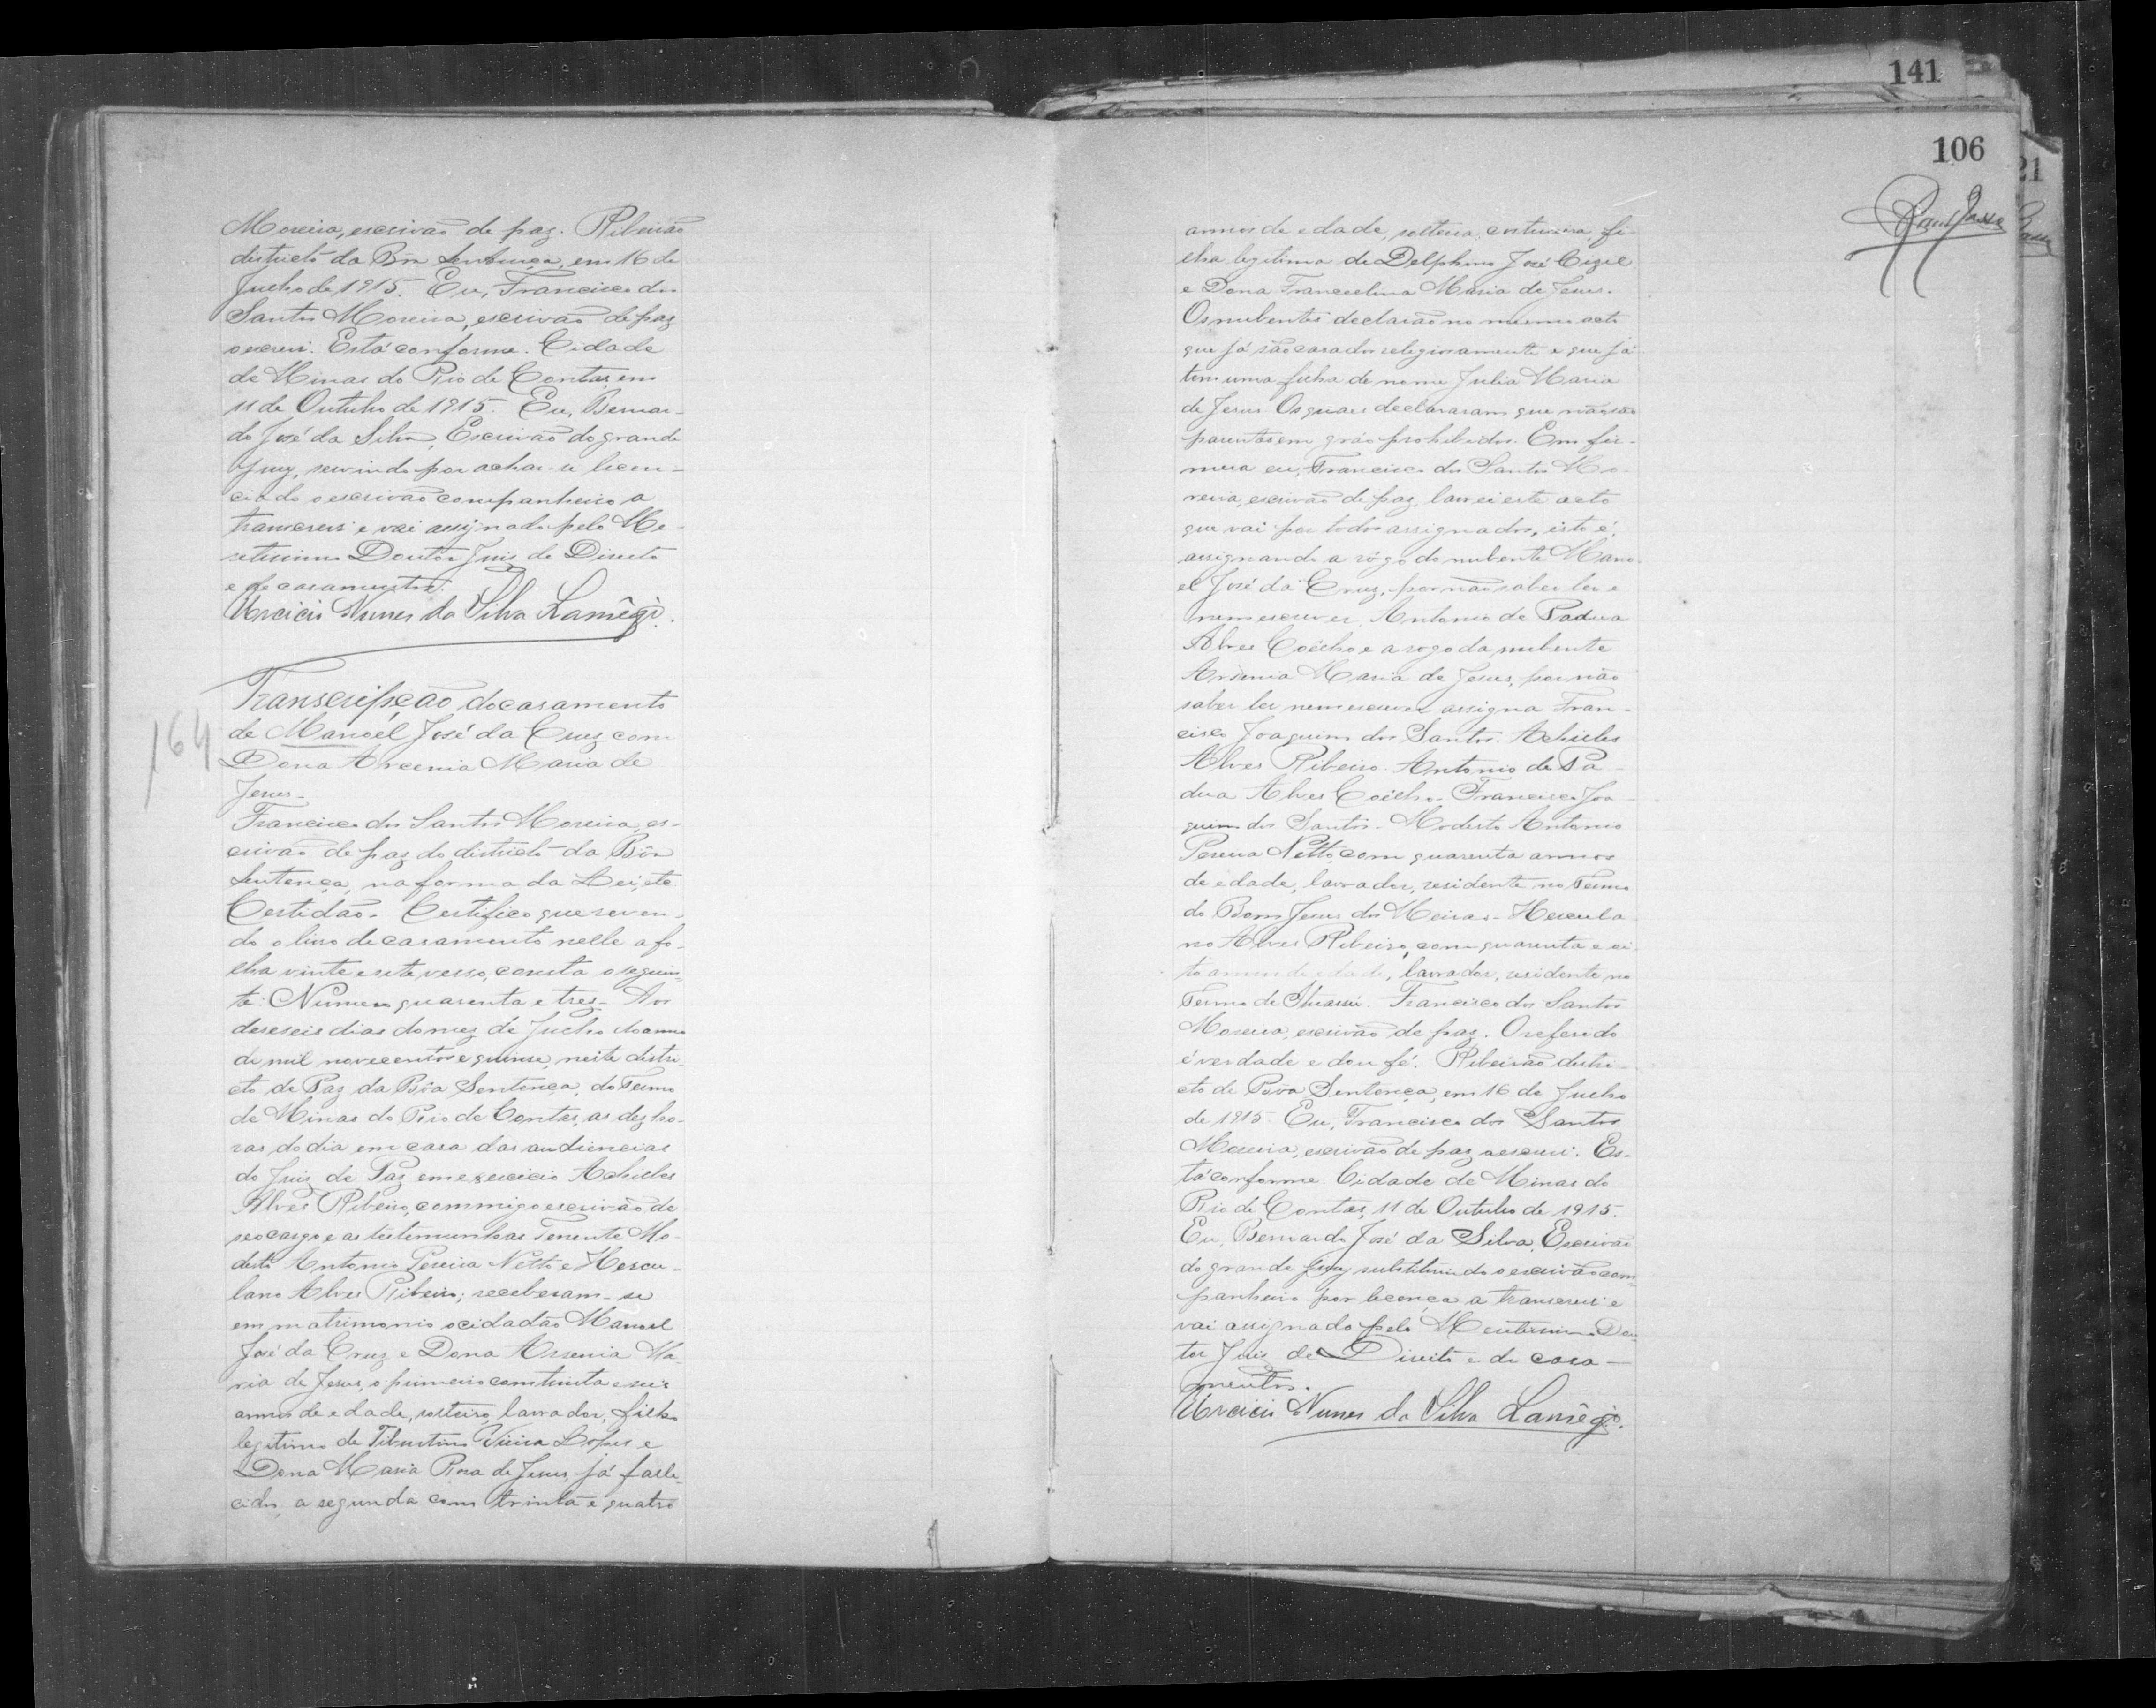 Moreira, escrivão de paz. Ribeirão
districto da Bôa Sentença, em 16 de
Julho de 1915. Eu, Francisco dos
Santos Moreira, escrivão de paz
o escrevi. Está conforme. Cidade
de Minas do Rio de Contas, em
11 de Outubro de 1915. Eu, Bernar-
do José da Silva, Escrivão do grande
Jury, servindo por achar-se licen-
ciado o escrivão companheiro a
transcrevi e vai assignada pelo Me-
retissimo Doutor Juis de Direito
e de casamentos.
Urcicio Nunes da Silva Lamêgo.
164
Transcripção do casamento
de Manoél José da Cruz com
Dona Arcenia Maria de
Jesus-
Francisco dos Santos Moreira, es-
crivão de paz do districto da Bôa
Sentença, na forma da Lei, etc
Certidão- Certifico que reven-
do o livro de casamento nelle a fo-
lha vinte e sete verso, consta o seguin-
te: Numero quarenta e tres- Aos
deseseis dias do mez de Julho do anno
de mil novecentos e quinse, neste distri-
cto de Paz da Bôa Sentença, do Termo
de Minas do Rio de Contas, as dez ho-
ras do dia em casa das audiencias
do Juiz de Paz em exercicio Achilles
Alves Ribeiro, commigo escrivão de
seo cargo e as testemunhas Tenente Mo-
desto Antonio Pereira Netto e Hercu-
lano Alves Ribeiro; receberam-se
em matrimonio o cidadão Manoel
José da Cruz e Dona Arsenia Ma-
ria de Jesus, o primeiro com trinta e seis
annos de edade, solteiro, lavrador, filho
legitimo de Tiburtino Vieira Lopes e
Dona Maria Rosa de Jesus, já falle-
cidos, a segunda com trinta e quatro
141
106
21
annos de edade, solteira, costureira, fi-
lha legitima de Delphino José
e Dona Francelina Maria de Jesus.
Os nubentes declarão no mesmo acto
que já são casados religiosamente e que já
tem uma filha de nome Julia Maria
de Jesus. Os quaes declararam que não são
parentes em gráo prohibidos. Em fir-
mesa eu, Francisco dos Santos Mo-
reira, escrivão de paz, lavrei este acto
que vai por todos assignados, isto é,
assignando a rógo do nubente Mano-
el José da Cruz, por não saber ler e
nem escrever, Antonio de Padua
Alves Coêlho e a rogo da nubente
Arsenia Maria de Jesus, por não
saber ler nem escrever assigna Fran-
cisco Joaquim dos Santos. Achilles
Alves Ribeiro. Antonio de Pa-
dua Alves Coêlho- Francisco Joa-
quim dos Santos- Modesto Antonio
Pereira Netto, com quarenta annos
de edade, lavrador, residente no Termo
do Bom Jesus dos Meiras- Hercula-
no Alves Ribeiro, com quarenta e oi-
to annos de edade, lavrador, residente no
Termo de Ituassú. Francisco dos Santos
Moreira, escrivão de paz. O referido
é verdade e dou fé. Ribeirão distri-
cto de Bôa Sentença, em 16 de Julho
de 1915. Eu, Francisco dos Santos
Moreira, escrivão de paz o escrevi. Es-
tá conforme. Cidade de Minas do
Rio de Contas, 11 de Outubro de 1915.
Eu, Bernardo José da Silva, Escrivão
do grande Jury substituindo o escrivão com-
panheiro por licença a transcrevi e
vai assignado pelo Meretissimo Dou-
tor Juis de Direito e de casa-
mentos.
Urcicio Nunes da Silva Lamêgo.